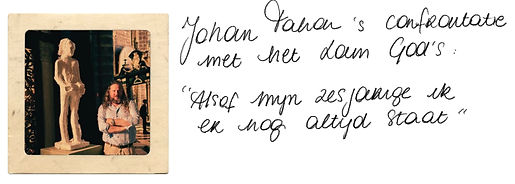 Johan Tahon's confrontatie
met het Lam Gods:
"Alsof mijn zesjarige ik
er nog altijd staat"